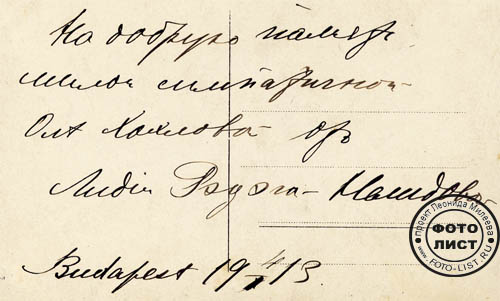 На добрую память
милой симпатичной
Оле Хохловой отъ
Лидіи
Budapest 19 4/I 13
проект Леонида Милеева
ФОТО
ЛИСТ
WWW.FOTO-LIST.RU